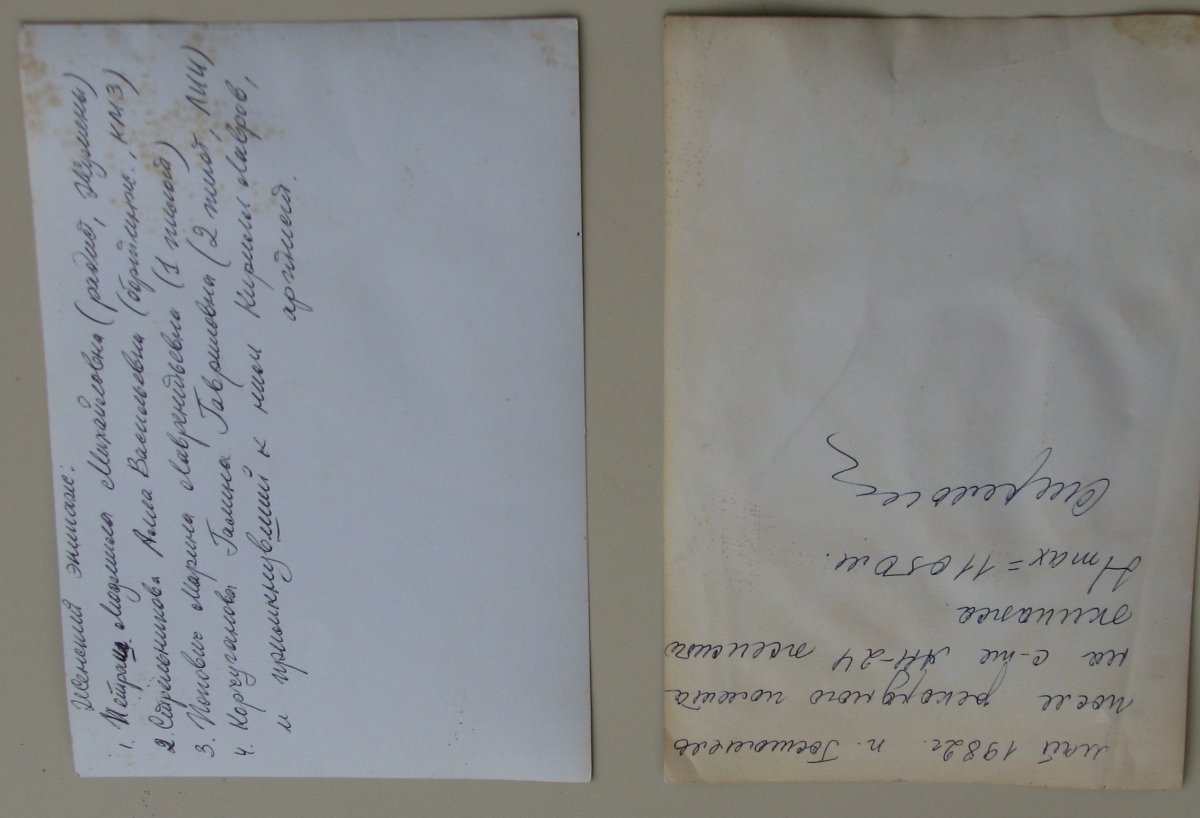 Женский экипаж:
1. Петраш Людмила Михайловна (радист, Жуляны)
2. Стрельникова Алла Васильевна (бортинж., КМЗ)
3. Попович Марина Лаврентьевна (1 пилот)
4. Корчуганова Галина Гавриловна (2 пилот, ЛИИ)
и примкнувший к ним Кирилл Лавров,
артист.
май 1982г. п. Гостомель
после рекордного полета
на с-те АН-24 женского
экипажа
Hmax = 11050 м.